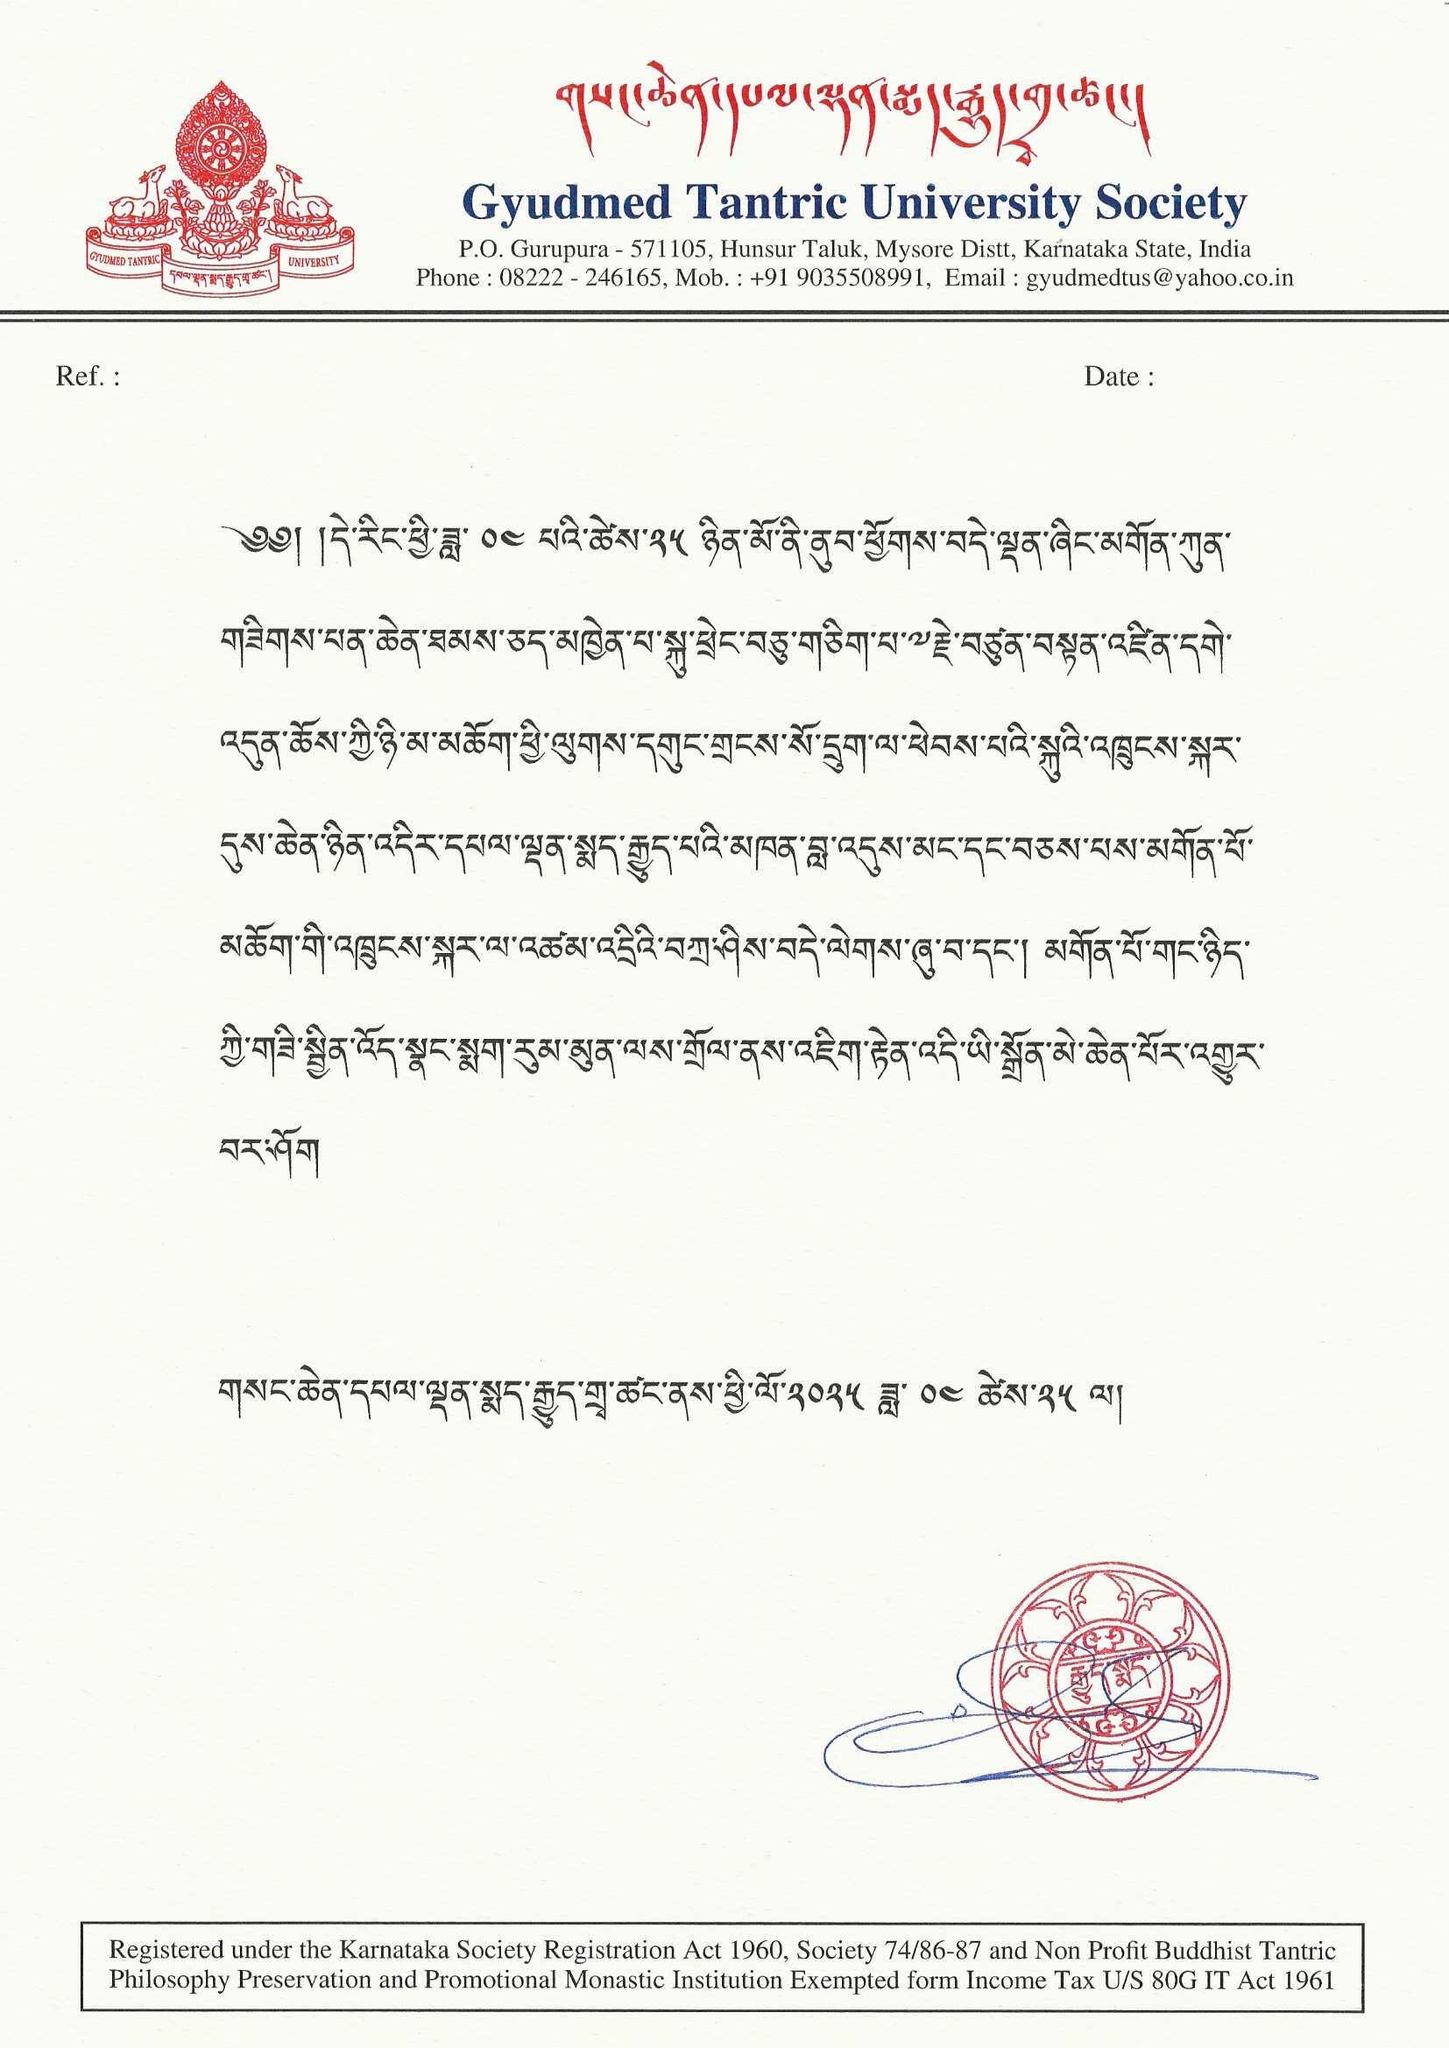 གསང་ཆེན་དཔལ་ལྡན་སྨད་རྒྱུད་གྲྭ་ཚང།
Gyudmed Tantric University Society
P.O. Gurupura - 571105, Hunsur Taluk, Mysore Distt, Karnataka State, India
Phone : 08222 - 246165, Mob. : +91 9035508991, Email : gyudmedtus@yahoo.co.in
GYUDMED TANTRIC
དཔལ་ལྡན་སྨད་རྒྱུད་གྲྭ་ཚང་།
UNIVERSITY
Ref. :
Date :
༄༅། །དེ་རིང་ཕྱི་ཟླ་ ༠༤ པའི་ཚེས་༢༥ ཉིན་མོ་ནི་ནུབ་ཕྱོགས་བདེ་ལྡན་ཞིང་མགོན་ཀུན་
གཟིགས་པན་ཆེན་ཐམས་ཅད་མཁྱེན་པ་སྐུ་ཕྲེང་བཅུ་གཅིག་པ་༧རྗེ་བཙུན་བསྟན་འཛིན་དགེ་
འདུན་ཆོས་ཀྱི་ཉི་མ་མཆོག་ཕྱི་ལུགས་དགུང་གྲངས་སོ་དྲུག་ལ་ཕེབས་པའི་སྐུའི་འཁྲུངས་སྐར་
དུས་ཆེན་ཉིན་འདིར་དཔལ་ལྡན་སྨད་རྒྱུད་པའི་མཁན་བླ་འདུས་མང་དང་བཅས་པས་མགོན་པོ་
མཆོག་གི་འཁྲུངས་སྐར་ལ་འཚམ་འདྲིའི་བཀྲ་ཤིས་བདེ་ལེགས་ཞུ་བ་དང་། མགོན་པོ་གང་ཉིད་
ཀྱི་གཟི་སྦྱིན་འོད་སྣང་སྨག་རུམ་མུན་ལས་གྲོལ་ནས་འཇིག་རྟེན་འདི་ཡི་སྒྲོན་མེ་ཆེན་པོར་འགྱུར་
བར་ཤོག
གསང་ཆེན་དཔལ་ལྡན་སྨད་རྒྱུད་གྲྭ་ཚང་ནས་ཕྱི་ལོ་༢༠༢༥ ཟླ་ ༠༤ ཚེས་༢༥ ལ།
Registered under the Karnataka Society Registration Act 1960, Society 74/86-87 and Non Profit Buddhist Tantric
Philosophy Preservation and Promotional Monastic Institution Exempted form Income Tax U/S 80G IT Act 1961